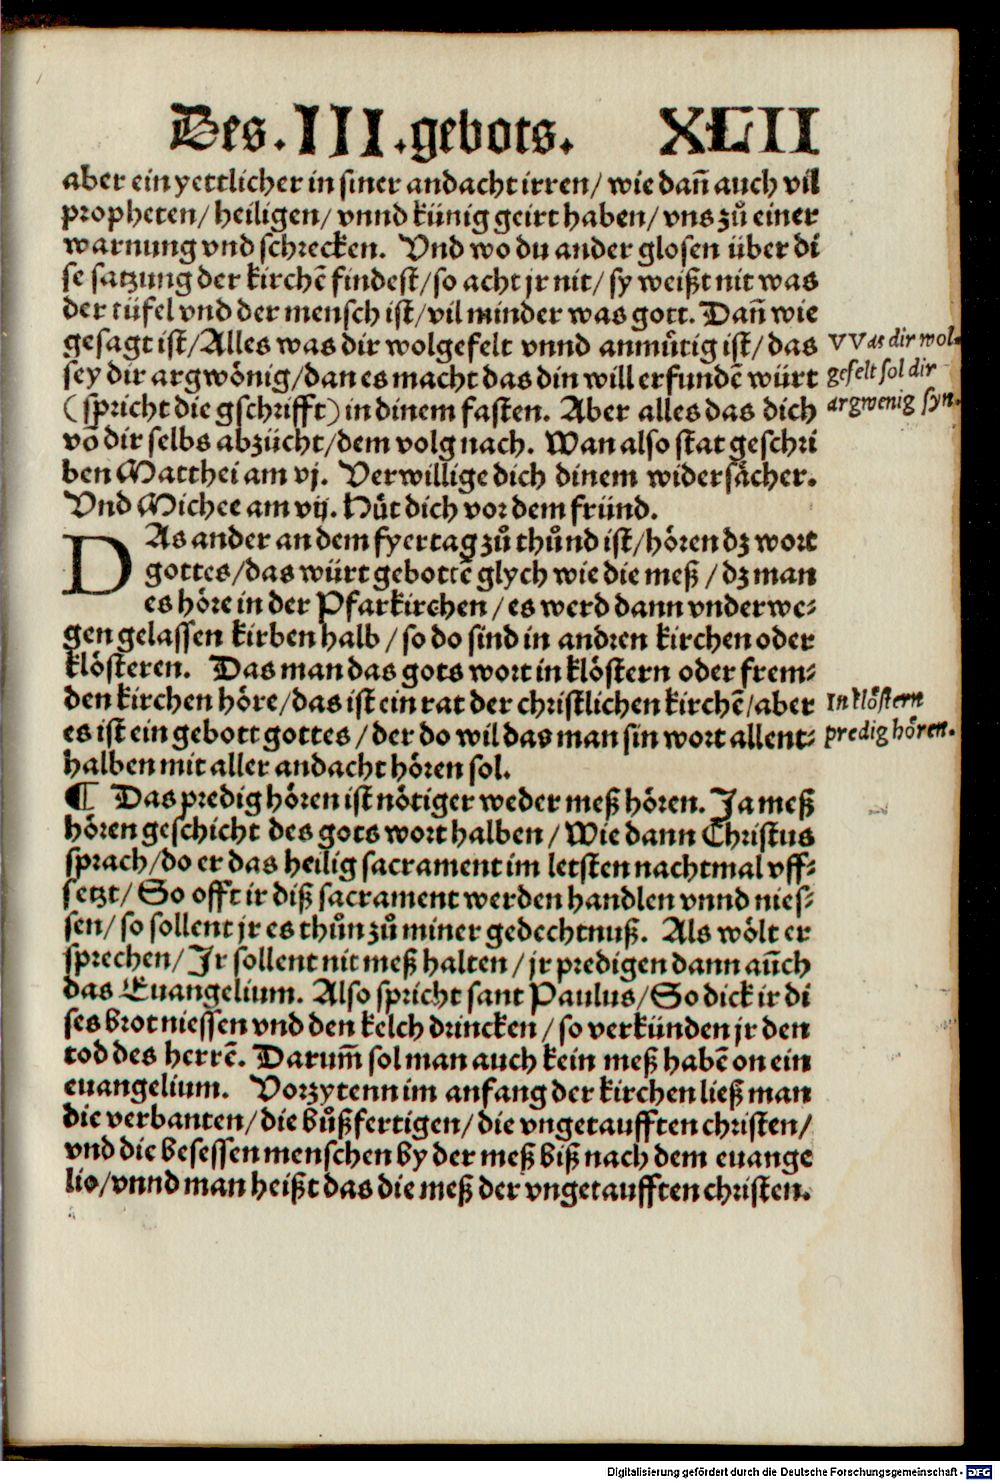 Des.III.gebots. XLII
aber ein yettlicher in siner andacht irren/ wie dañ auch vil
propheten/ heiligen/ vnnd künig geirt haben/ vns zů einer
warnung vnd schrecken. Vnd wo du ander glosen über di
se satzung der kirchē findest/so acht jr nit/ sy weißt nit was
der tüfel vnd der mensch ist/vil minder was gott. Dañ wie
gesagt ist/Alles was dir wolgefelt vnnd anmůtig ist/das
VVas dir wol-
sey dir argwönig/dan es macht das din will erfundē würt
gefelt sol dir
(spricht die gschrifft) in dinem fasten. Aber alles das dich
argwenig syn.
vō dir selbs abzücht/dem volg nach. Wan also stat geschri
ben Matthei am vj. Verwillige dich dinem widersächer.
Vnd Michee am vij. Hüt dich vor dem fründ.
DAs ander an dem fyertag zů thůnd ist/hören dz wort
gottes/das würt gebottē glych wie die meß/dz man
es höre in der Pfarkirchen/es werd dann vnderwe-
gen gelassen kirben halb/so do sind in andren kirchen oder
klösteren. Das man das gots wort in klöstern oder frem-
den kirchen höre/das ist ein rat der christlichen kirchē/aber
In klöstern
es ist ein gebott gottes/der do wil das man sin wort allent-
predig hören.
halben mit aller andacht hören sol.
¶ Das predig hören ist nötiger weder meß hören. Ja meß
hören geschicht des gots wort halben/Wie dann Christus
sprach/do er das heilig sacrament im letsten nachtmal vff-
setzt/So offt ir diß sacrament werden handlen vnnd nies-
sen/so sollent jr es thůn zů miner gedechtnuß. Als wölt er
sprechen/Ir sollent nit meß halten/jr predigen dann aůch
das Euangelium. Also spricht sant Paulus/So dick ir di
ses brot niessen vnd den kelch drincken/so verkünden jr den
tod des herrē. Darum̃ sol man auch kein meß habē on ein
euangelium. Vorzytenn im anfang der kirchen ließ man
die verbanten/die bůßfertigen/die vngetaufften christen/
vnd die besessen menschen by der meß biß nach dem euange
lio/vnnd man heißt das die meß der vngetaufften christen.
Digitalisierung gefördert durch die Deutsche Forschungsgemeinschaft - DFG